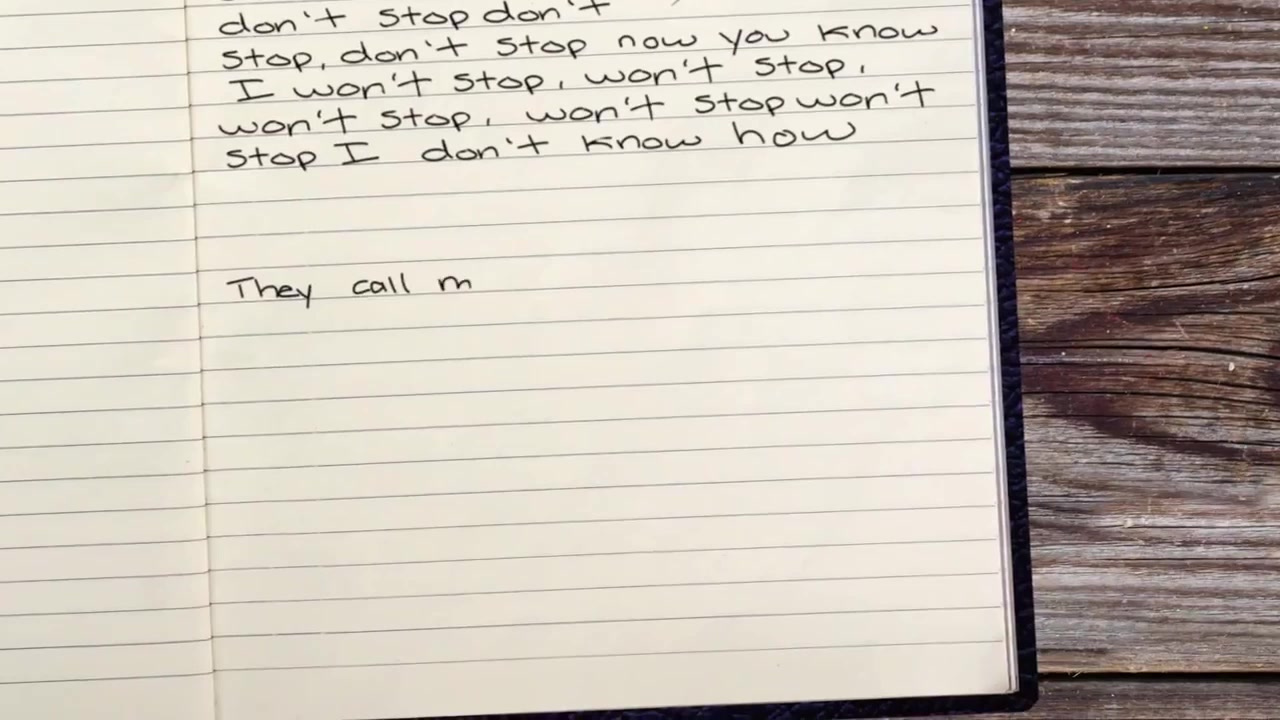 don't stop don't
stop, don't stop now you know
I won't stop, won't stop,
won't stop, won't stop won't
stop I don't know how
They call m